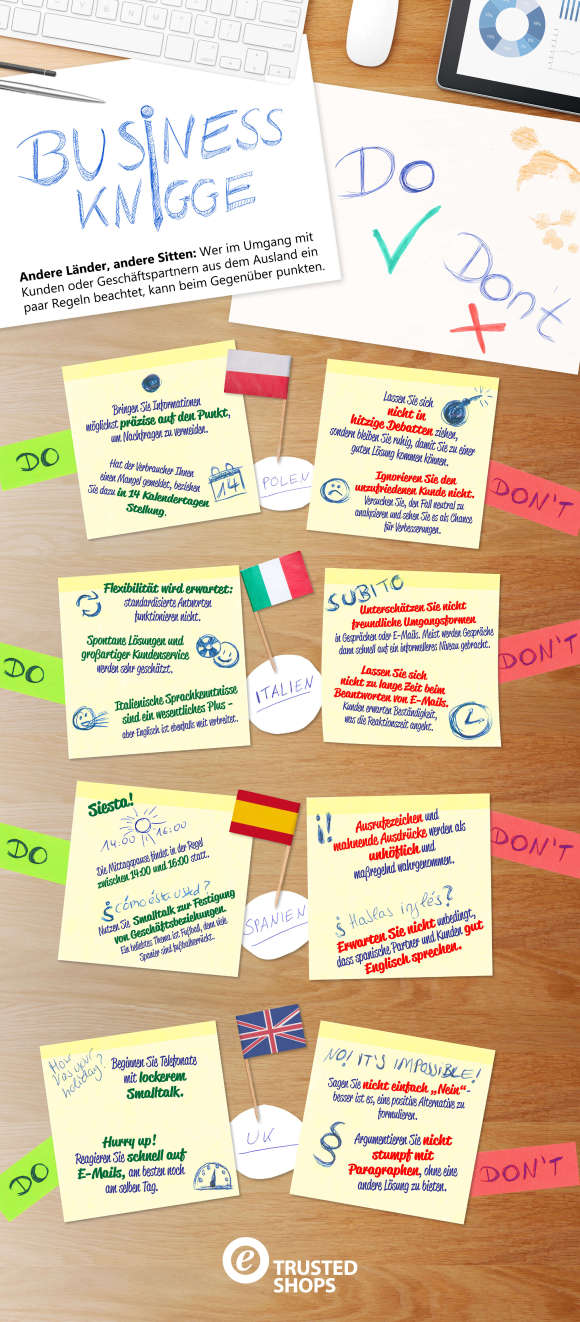 BUSINESS
KNIGGE
Andere Länder, andere Sitten: Wer im Umgang mit
Kunden oder Geschäftspartnern aus dem Ausland ein
paar Regeln beachtet, kann beim Gegenüber punkten.
Do
Don't
DO
Bringen Sie Informationen
möglichst präzise auf den Punkt,
um Nachfragen zu vermeiden.
Hat der Verbraucher Ihnen
einen Mangel gemeldet, beziehen
Sie dazu in 14 Kalendertagen
Stellung.
14
POLEN
Lassen Sie sich
nicht in
hitzige Debatten ziehen,
sondern bleiben Sie ruhig, damit Sie zu einer
guten Lösung kommen können.
Ignorieren Sie den
unzufriedenen Kunde nicht.
Versuchen Sie, den Fall neutral zu
analysieren und sehen Sie es als Chance
für Verbesserungen.
DON'T
DO
Flexibilität wird erwartet:
standardisierte Antworten
funktionieren nicht.
Spontane Lösungen und
großartiger Kundenservice
werden sehr geschätzt.
Italienische Sprachkenntnisse
sind ein wesentliches Plus –
aber Englisch ist ebenfalls weit verbreitet.
ITALIEN
SUBITO
Unterschätzen Sie nicht
freundliche Umgangsformen
in Gesprächen oder E-Mails. Meist werden Gespräche
dann schnell auf ein informelleres Niveau gebracht.
Lassen Sie sich
nicht zu lange Zeit beim
Beantworten von E-Mails.
Kunden erwarten Beständigkeit,
was die Reaktionszeit angeht.
DON'T
DO
Siesta!
14:00 16:00
Die Mittagspause findet in der Regel
zwischen 14:00 und 16:00 statt.
¿cómo ésta usted?
Nutzen Sie Smalltalk zur Festigung
von Geschäftsbeziehungen.
Ein beliebtes Thema ist Fußball, denn viele
Spanier sind fußballverrückt.
SPANIEN
¡!
Ausrufezeichen und
mahnende Ausdrücke werden als
unhöflich und
maßregelnd wahrgenommen.
¿Hablas inglés?
Erwarten Sie nicht unbedingt,
dass spanische Partner und Kunden gut
Englisch sprechen.
DON'T
DO
How
was your
holiday?
Beginnen Sie Telefonate
mit lockerem
Smalltalk.
Hurry up!
Reagieren Sie schnell auf
E-Mails, am besten noch
am selben Tag.
UK
NO! IT'S IMPOSSIBLE!
Sagen Sie nicht einfach „Nein“-
besser ist es, eine positive Alternative zu
formulieren.
§
Argumentieren Sie nicht
stumpf mit
Paragraphen, ohne eine
andere Lösung zu bieten.
DON'T
e
TRUSTED
SHOPS